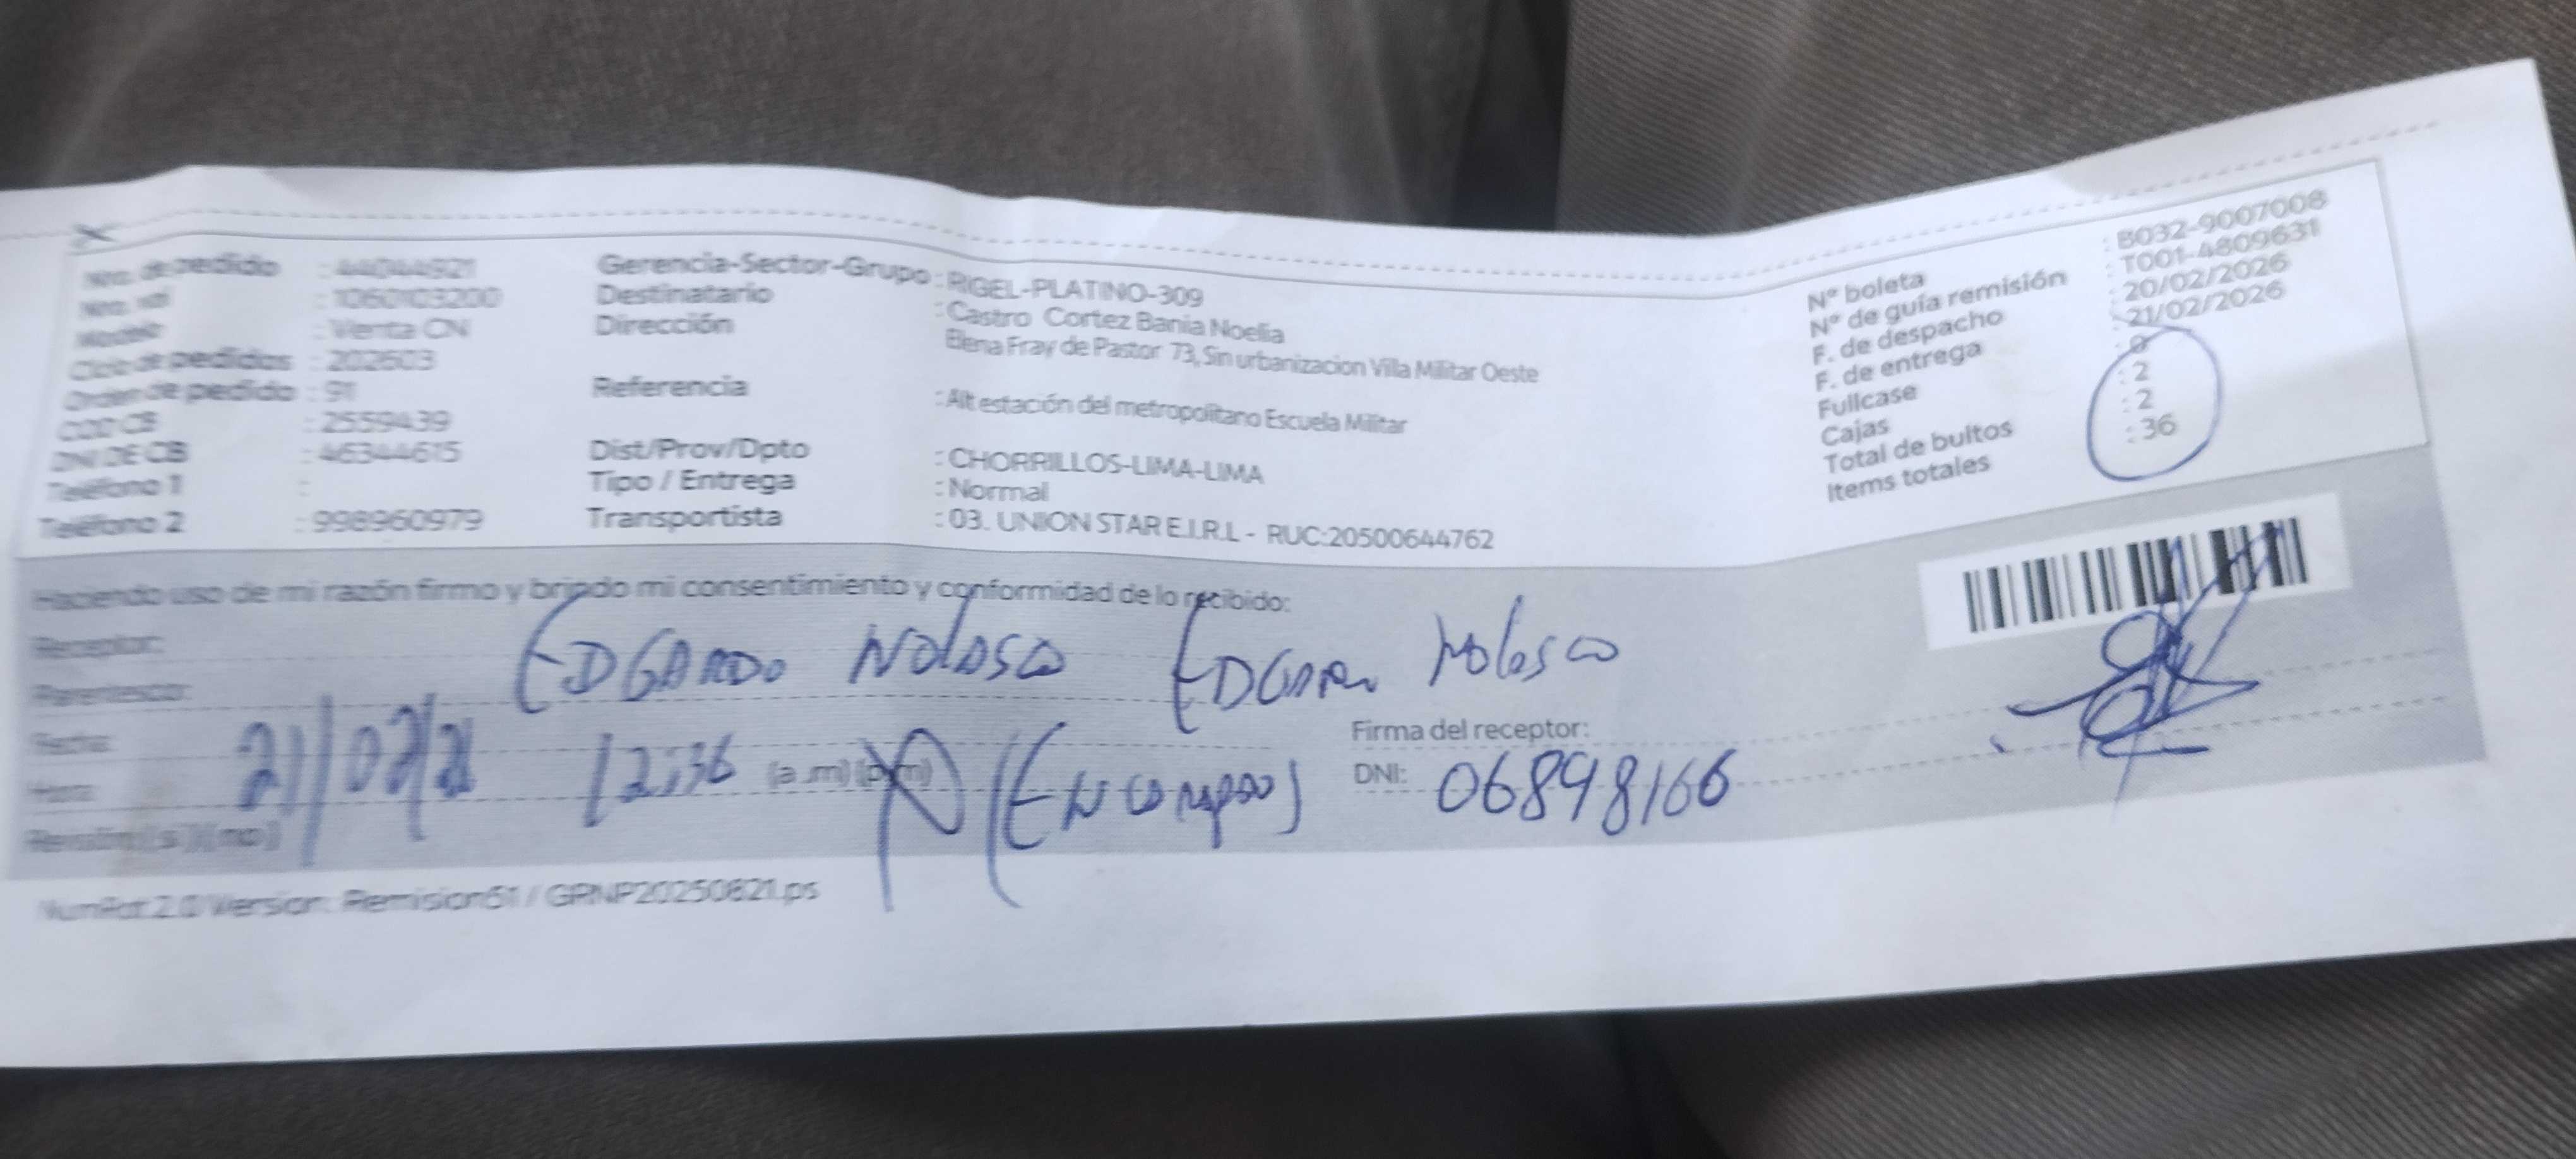 Nro. de pedido : 44044921
Nro. vol : 1060103200
Modelo : Venta CN
Ciclo de pedidos : 202603
Orden de pedido : 91
COD CB : 2559439
DNI DE CB : 46344615
Teléfono 1 :
Teléfono 2 : 998960979
Gerencia-Sector-Grupo : RIGEL-PLATINO-309
Destinatario : Castro Cortez Bania Noelia
Dirección : Elena Fray de Pastor 73, Sin urbanizacion Villa Militar Oeste
Referencia : Alt estación del metropolitano Escuela Militar
Dist/Prov/Dpto : CHORRILLOS-LIMA-LIMA
Tipo / Entrega : Normal
Transportista : 03. UNION STAR E.I.R.L - RUC:20500644762
N° boleta : B032-9007008
N° de guía remisión : T001-4809631
F. de despacho : 20/02/2026
F. de entrega : 21/02/2026
Fullcase : 0
Cajas : 2
Total de bultos : 2
Items totales : 36
Haciendo uso de mi razón firmo y brindo mi consentimiento y conformidad de lo recibido:
Receptor: EDGARDO NOLASCO
Parentesco:
Fecha: 21/02/
Hora: 12:36 (a.m) (p.m)
Firma del receptor:
DNI: 06898166
NumRot 2.0 Version: Remision51 / GRNP20250821.ps